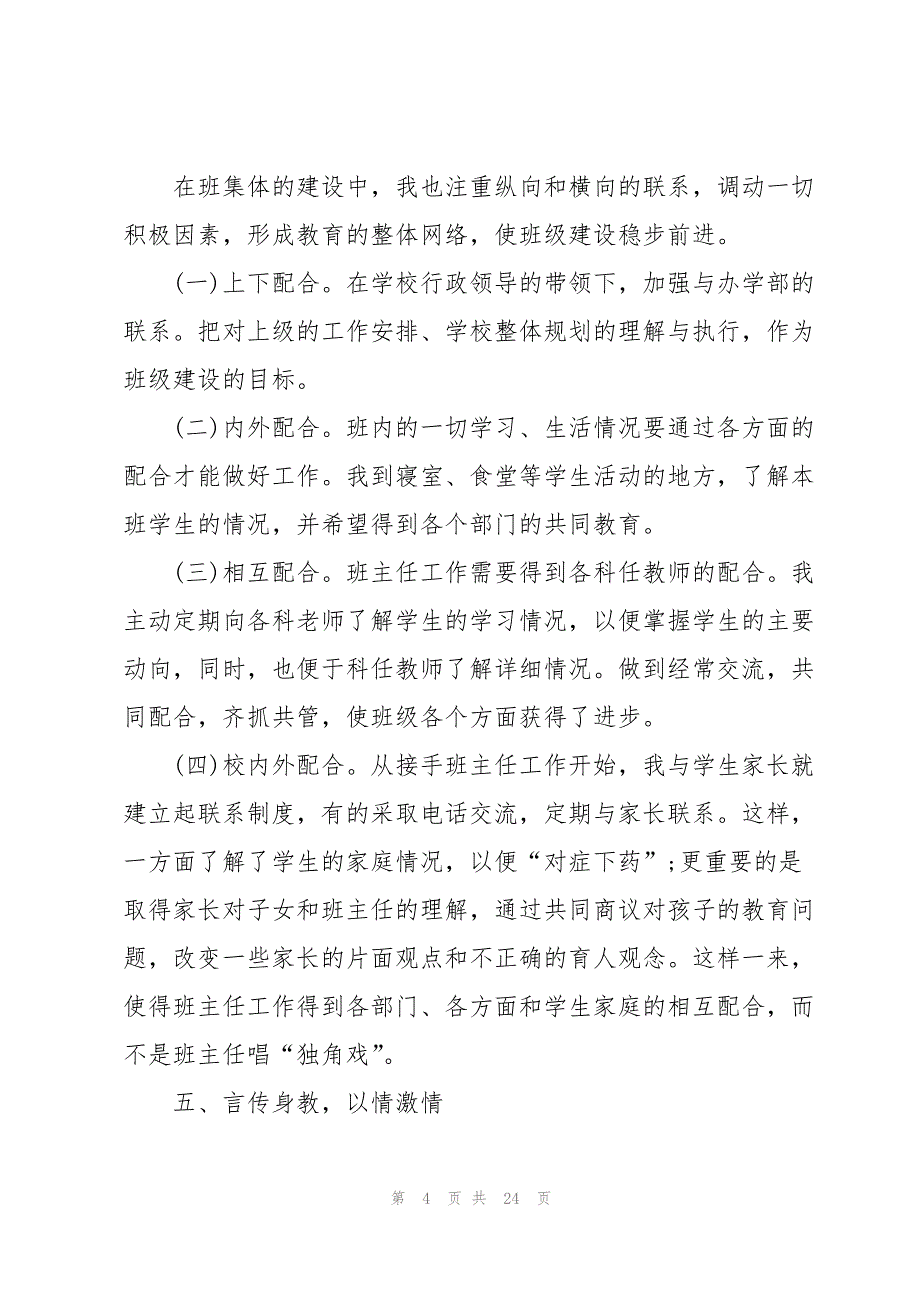 在班集体的建设中，我也注重纵向和横向的联系，调动一切
积极因素，形成教育的整体网络，使班级建设稳步前进。
(一)上下配合。在学校行政领导的带领下，加强与办学部的
联系。把对上级的工作安排、学校整体规划的理解与执行，作为
班级建设的目标。
(二)内外配合。班内的一切学习、生活情况要通过各方面的
配合才能做好工作。我到寝室、食堂等学生活动的地方，了解本
班学生的情况，并希望得到各个部门的共同教育。
(三)相互配合。班主任工作需要得到各科任教师的配合。我
主动定期向各科老师了解学生的学习情况，以便掌握学生的主要
动向，同时，也便于科任教师了解详细情况。做到经常交流，共
同配合，齐抓共管，使班级各个方面获得了进步。
(四)校内外配合。从接手班主任工作开始，我与学生家长就
建立起联系制度，有的采取电话交流，定期与家长联系。这样，
一方面了解了学生的家庭情况，以便“对症下药”;更重要的是
取得家长对子女和班主任的理解，通过共同商议对孩子的教育问
题，改变一些家长的片面观点和不正确的育人观念。这样一来，
使得班主任工作得到各部门、各方面和学生家庭的相互配合，而
不是班主任唱“独角戏”。
五、言传身教，以情激情
第 4 页 共 24 页